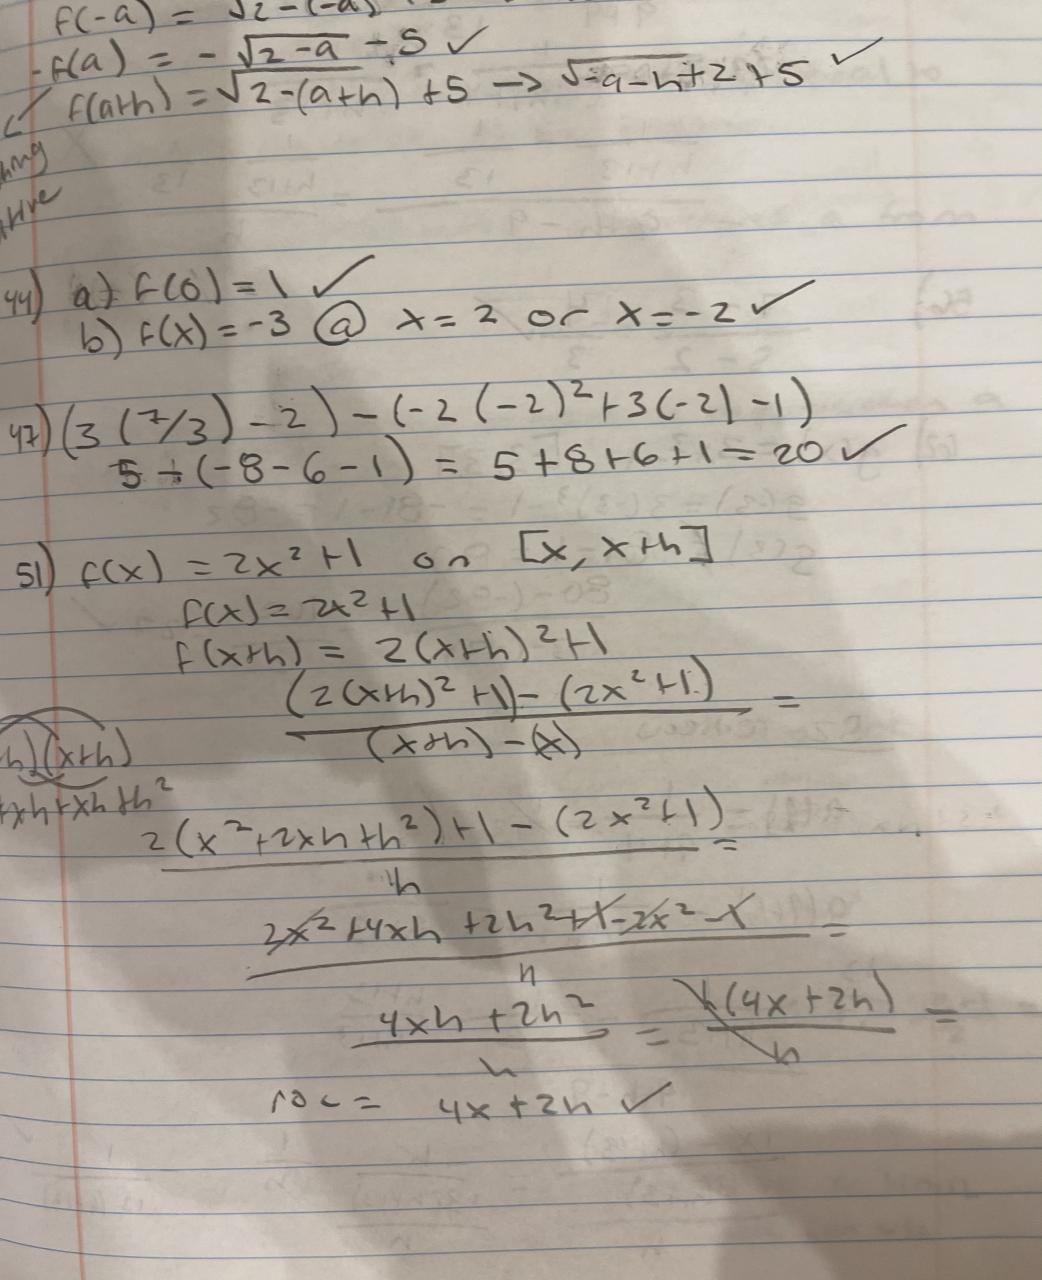 f(-a) = √2-(-a)
-f(a) = -√2-a - 5 ✓
f(a+h) = √2-(a+h) +5 → √-a-h+2 +5 ✓
44) a) f(0) = 1 ✓
b) f(x) = -3 @ x = 2 or x = -2 ✓
47) (3(7/3) - 2) - (-2(-2)²+3(-2) -1)
5 - (-8-6-1) = 5+8+6+1 = 20 ✓
51) f(x) = 2x²+1 on [x, x+h]
f(x) = 2x²+1
f(x+h) = 2(x+h)²+1
(2(x+h)² +1) - (2x²+1) =
(x+h) - (x)
h)(x+h)
+xh+xh+h²
2(x²+2xh+h²)+1 - (2x²+1) =
h
2x²+4xh+2h²+1-2x²-1 =
h
4xh + 2h² = h(4x+2h) =
h h
roc = 4x+2h ✓